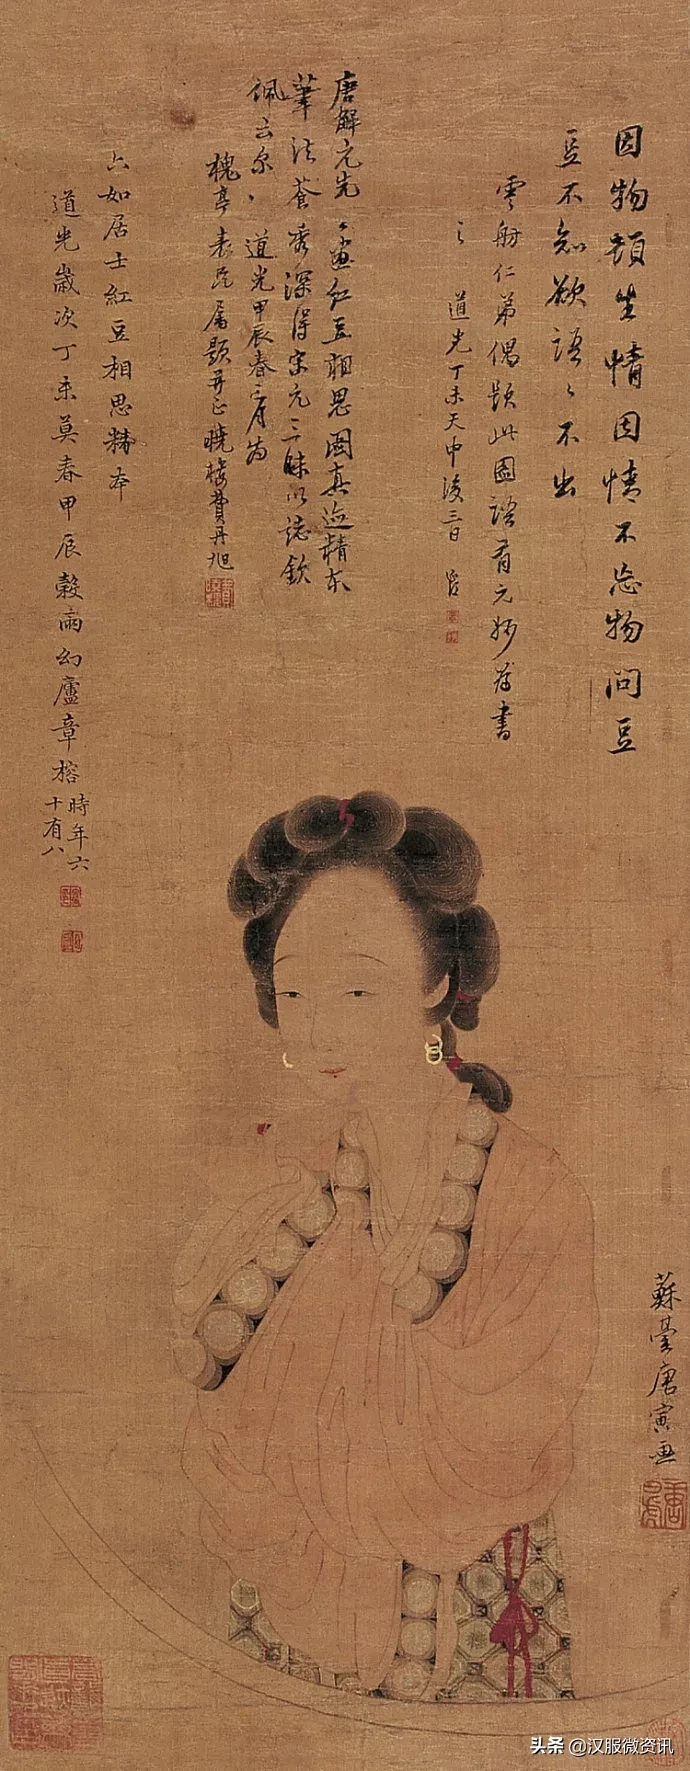 因物頓生情因情不忘物問豆
豆不知欲語〻不出
雲舫仁弟偶題此圖語有元妙為書
之道光丁未天中後三日
唐解元先〻畫紅豆相思圖真迹精本
筆法蒼秀深得宋元三昧以誌欽
佩云尔道光甲辰春三月為
槐亭表兄屬題并正曉樓費丹旭
六如居士紅豆相思精本
道光歲次丁未莫春甲辰穀雨幻廬章榕
時年六
十有八
蘇臺唐寅画
头条 @汉服微资讯